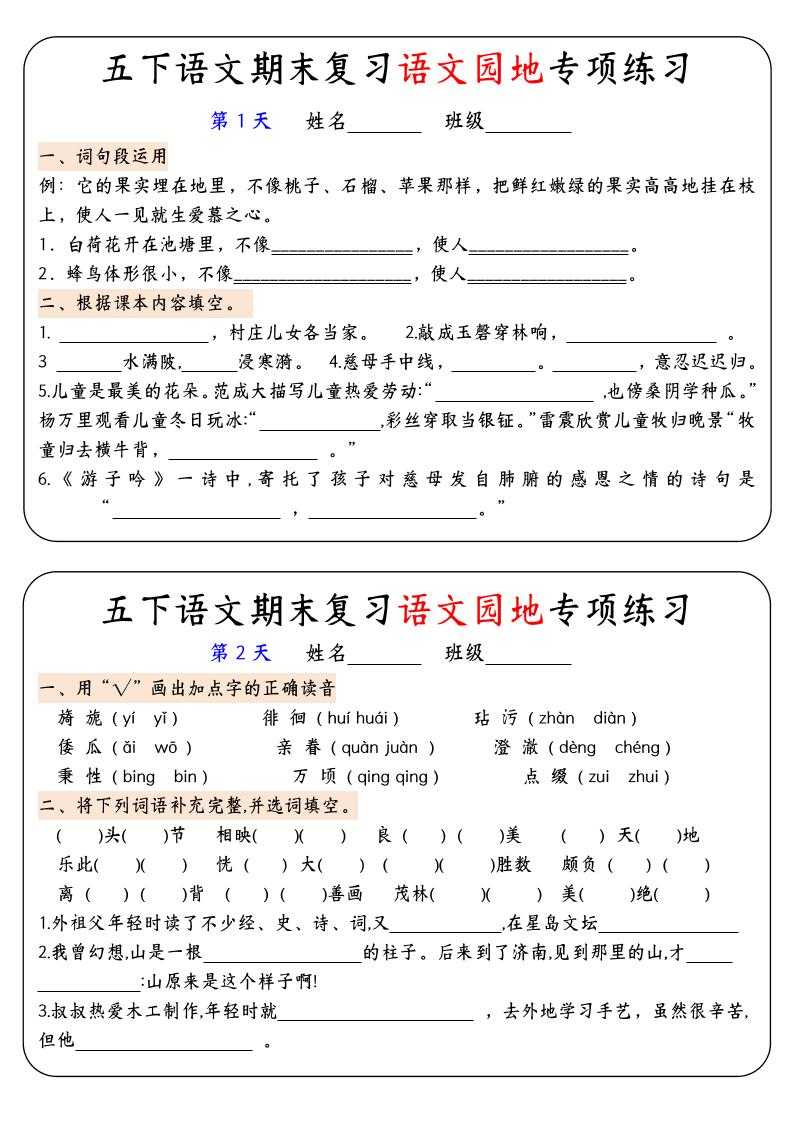 五下语文期末复习语文园地专项练习
第 1 天 姓名_______ 班级________
一、词句段运用
例：它的果实埋在地里，不像桃子、石榴、苹果那样，把鲜红嫩绿的果实高高地挂在枝
上，使人一见就生爱慕之心。
1．白荷花开在池塘里，不像________________，使人__________________。
2．蜂鸟体形很小，不像____________________，使人__________________。
二、根据课本内容填空。
1. ________________，村庄儿女各当家。 2.敲成玉磬穿林响，________________ 。
3 _______水满陂,______浸寒漪。 4.慈母手中线，_________。_________，意忍迟迟归。
5.儿童是最美的花朵。范成大描写儿童热爱劳动:“_________________ ,也傍桑阴学种瓜。”
杨万里观看儿童冬日玩冰:“_____________,彩丝穿取当银钲。”雷震欣赏儿童牧归晚景“牧
童归去横牛背，________________ 。”
6.《游子吟》一诗中,寄托了孩子对慈母发自肺腑的感恩之情的诗句是
“__________________ ，__________________。”
五下语文期末复习语文园地专项练习
第 2 天 姓名_______ 班级________
一、用“√”画出加点字的正确读音
旖 旎（yí yǐ） 徘 徊（huí huái） 玷 污（zhàn diàn）
倭 瓜（ǎi wō ） 亲 眷（quàn juàn ） 澄 澈（dèng chéng）
秉 性（bing bin） 万 顷（qing qing） 点 缀（zui zhui）
二、将下列词语补充完整,并选词填空。
( )头( )节 相映( )( ) 良（ ）（ )美 ( ）天( )地
乐此( )( ) 恍（ ）大( ） ( )( )胜数 颇负（ ）( )
离（ ）( )背 （ )（ )善画 茂林( )( ) 美( )绝( )
1.外祖父年轻时读了不少经、史、诗、词,又____________,在星岛文坛_______________
2.我曾幻想,山是一根_________________的柱子。后来到了济南,见到那里的山,才_____
___________:山原来是这个样子啊!
3.叔叔热爱木工制作,年轻时就_____________________ ，去外地学习手艺，虽然很辛苦,
但他___________________ 。